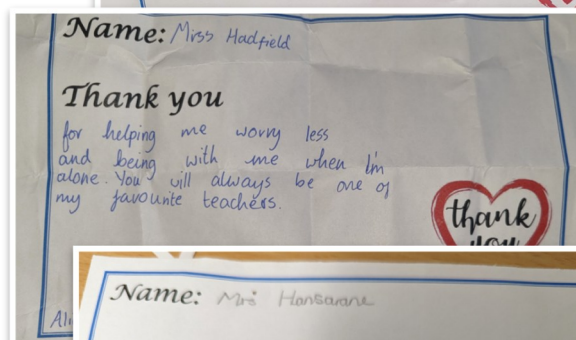 Name: Miss Hadfield
Thank you
for helping me worry less
and being with me when I'm
alone. You will always be one of
my favourite teachers.
thank
you
Name: Mrs